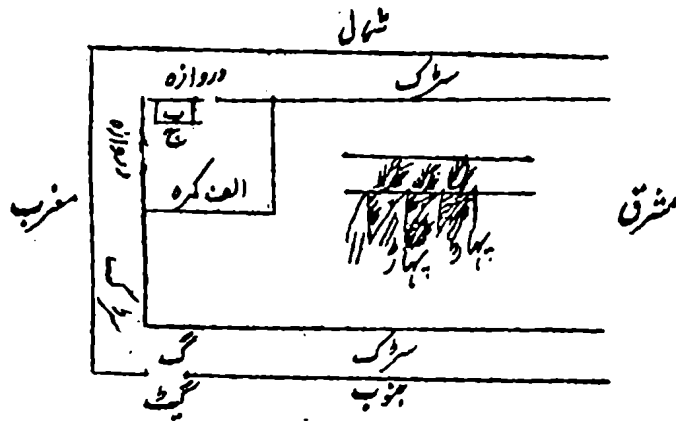 شمال
سڑک
دروازہ
ب
ج
دروازہ
الف کمرہ
مغرب
مشرق
پہاڑ
پہاڑ
سڑک
گ
سڑک
گیٹ
جنوب